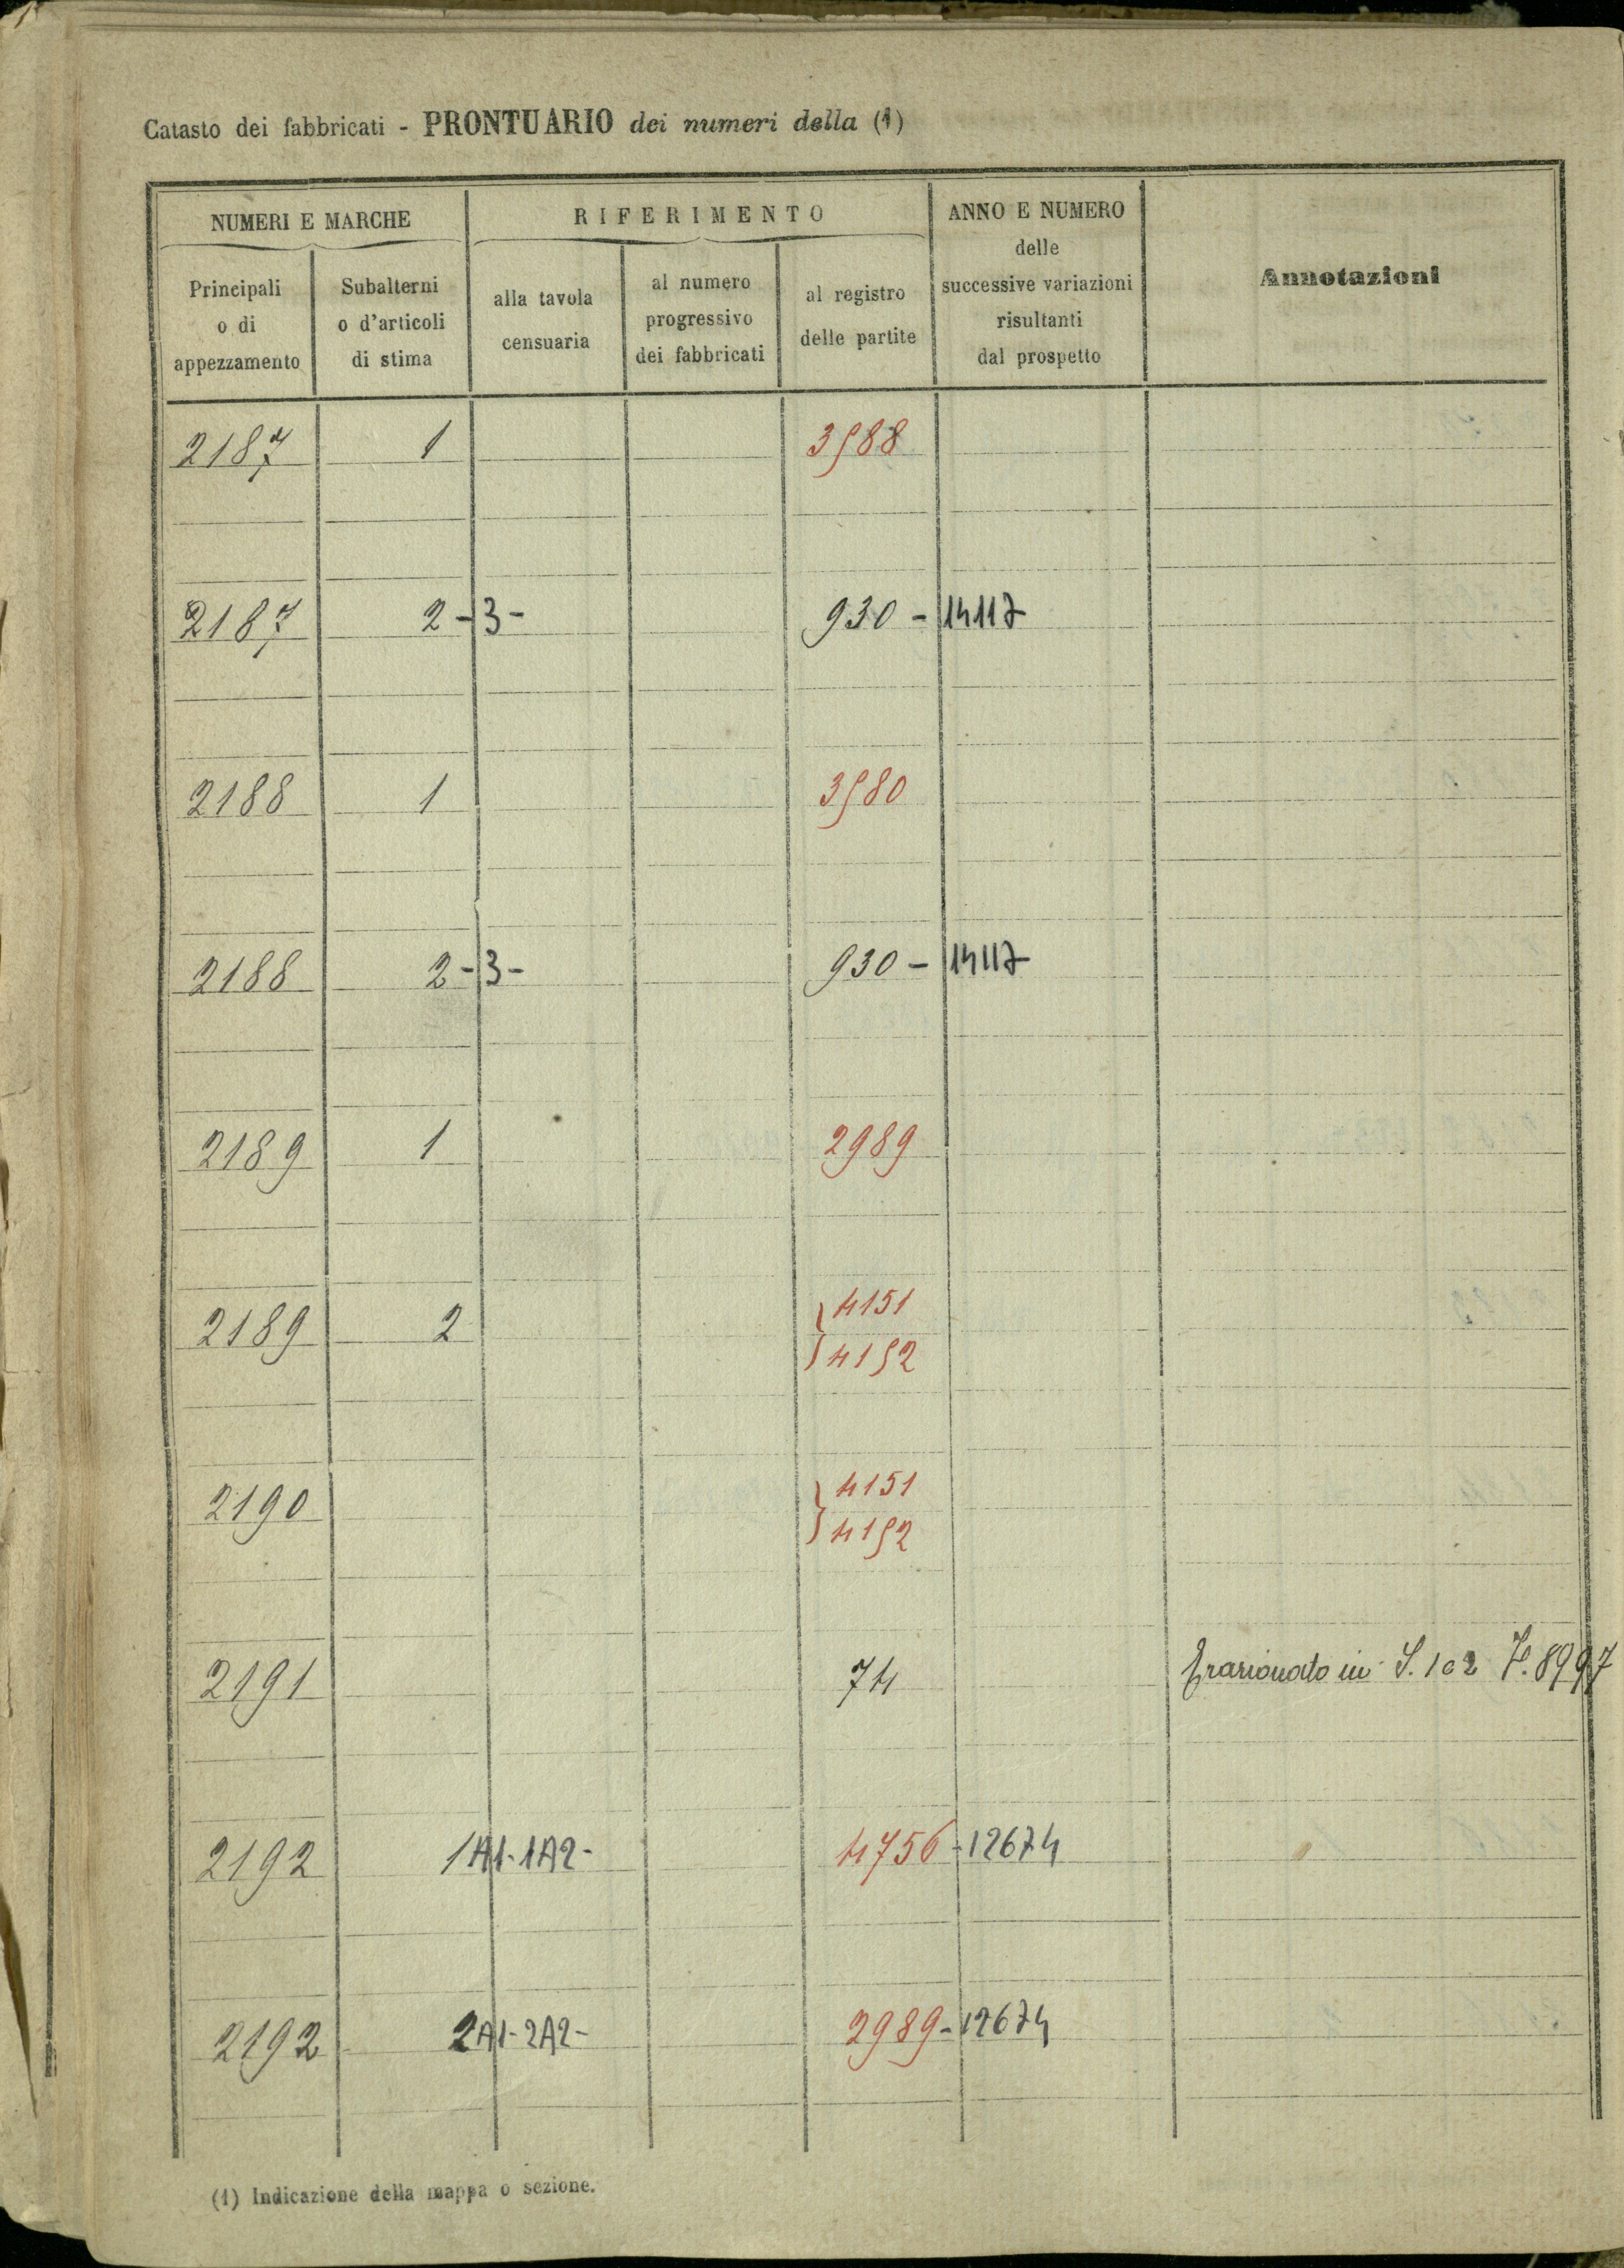 Catasto dei fabbricati - PRONTUARIO dei numeri della (1)
NUMERI E MARCHE
RIFERIMENTO
ANNO E NUMERO
delle
successive variazioni
risultanti
dal prospetto
Annotazioni
Principali
o di
appezzamento
Subalterni
o d'articoli
di stima
alla tavola
censuaria
al numero
progressivo
dei fabbricati
al registro
delle partite
2187 1 3588
2187 2-3- 930 - 14117
2188 1 3580
2188 2-3- 930 - 14117
2189 1 2989
2189 2 4151
4152
2190 4151
4152
2191 74 frazionato in S. 1 e 2 P. 8997
2192 1A1-1A2- 4756-12674
2192 2A1-2A2- 2989-12674
(1) Indicazione della mappa o sezione.